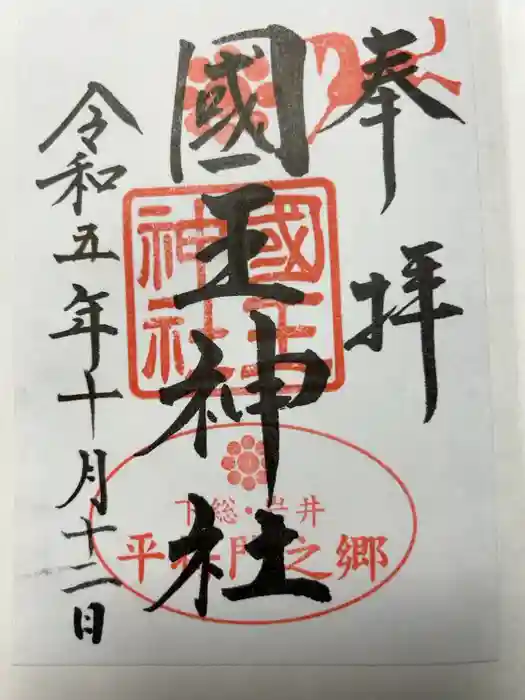 奉拝
國王神社
令和五年十月十二日
國王神社
下総・岩井
平将門之郷